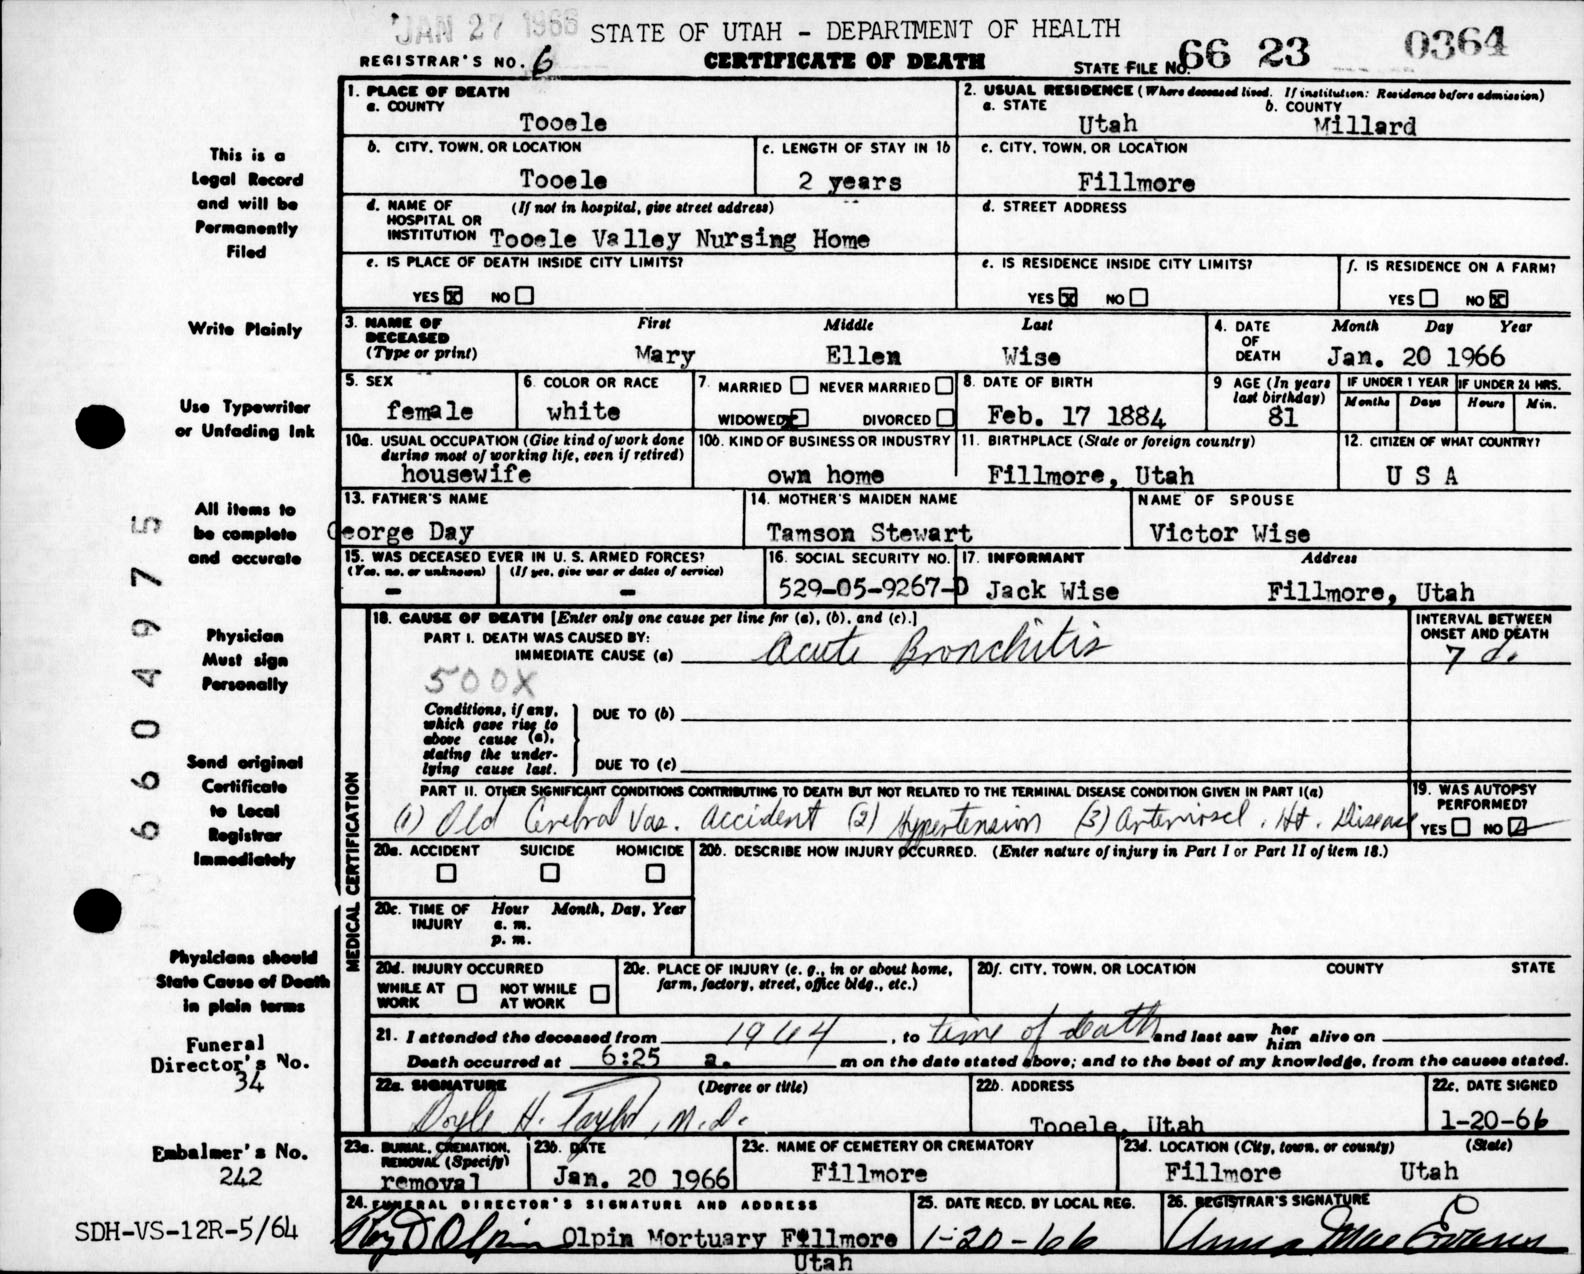 JAN 27 1966
STATE OF UTAH - DEPARTMENT OF HEALTH
REGISTRAR'S NO. 6 CERTIFICATE OF DEATH STATE FILE NO. 66 23 0364
1. PLACE OF DEATH
a. COUNTY
Tooele
2. USUAL RESIDENCE (Where deceased lived. If institution: Residence before admission)
a. STATE b. COUNTY
Utah Millard
b. CITY, TOWN, OR LOCATION
Tooele
c. LENGTH OF STAY IN 1b
2 years
c. CITY, TOWN, OR LOCATION
Fillmore
d. NAME OF HOSPITAL OR INSTITUTION (If not in hospital, give street address)
Tooele Valley Nursing Home
d. STREET ADDRESS
e. IS PLACE OF DEATH INSIDE CITY LIMITS?
YES x NO
e. IS RESIDENCE INSIDE CITY LIMITS?
YES x NO
f. IS RESIDENCE ON A FARM?
YES NO x
3. NAME OF DECEASED (Type or print)
First Middle Last
Mary Ellen Wise
4. DATE OF DEATH
Month Day Year
Jan. 20 1966
5. SEX
female
6. COLOR OR RACE
white
7. MARRIED NEVER MARRIED
WIDOWED x DIVORCED
8. DATE OF BIRTH
Feb. 17 1884
9 AGE (In years last birthday)
81
IF UNDER 1 YEAR IF UNDER 24 HRS.
Months Days Hours Min.
10a. USUAL OCCUPATION (Give kind of work done during most of working life, even if retired)
housewife
10b. KIND OF BUSINESS OR INDUSTRY
own home
11. BIRTHPLACE (State or foreign country)
Fillmore, Utah
12. CITIZEN OF WHAT COUNTRY?
U S A
13. FATHER'S NAME
George Day
14. MOTHER'S MAIDEN NAME
Tamson Stewart
NAME OF SPOUSE
Victor Wise
15. WAS DECEASED EVER IN U. S. ARMED FORCES?
(Yes, no, or unknown) (If yes, give war or dates of service)
- -
16. SOCIAL SECURITY NO.
529-05-9267-D
17. INFORMANT Address
Jack Wise Fillmore, Utah
18. CAUSE OF DEATH [Enter only one cause per line for (a), (b), and (c).]
PART I. DEATH WAS CAUSED BY:
IMMEDIATE CAUSE (a) Acute Bronchitis
INTERVAL BETWEEN ONSET AND DEATH
7 d.
500X
Conditions, if any, which gave rise to above cause (a), stating the underlying cause last.
DUE TO (b)
DUE TO (c)
PART II. OTHER SIGNIFICANT CONDITIONS CONTRIBUTING TO DEATH BUT NOT RELATED TO THE TERMINAL DISEASE CONDITION GIVEN IN PART I(a)
(1) Old Cerebral Vas. Accident (2) Hypertension (3) Arterioscl. Ht. Disease
19. WAS AUTOPSY PERFORMED?
YES NO
20a. ACCIDENT SUICIDE HOMICIDE
20b. DESCRIBE HOW INJURY OCCURRED. (Enter nature of injury in Part I or Part II of item 18.)
20c. TIME OF INJURY Hour Month, Day, Year
a. m.
p. m.
20d. INJURY OCCURRED
WHILE AT WORK NOT WHILE AT WORK
20e. PLACE OF INJURY (e. g., in or about home, farm, factory, street, office bldg., etc.)
20f. CITY, TOWN, OR LOCATION COUNTY STATE
21. I attended the deceased from 1964, to time of death and last saw her him alive on
Death occurred at 6:25 a. m on the date stated above; and to the best of my knowledge, from the causes stated.
22a. SIGNATURE (Degree or title)
Doyle H. Taylor, M.D.
22b. ADDRESS
Tooele, Utah
22c. DATE SIGNED
1-20-66
23a. BURIAL, CREMATION, REMOVAL (Specify)
removal
23b. DATE
Jan. 20 1966
23c. NAME OF CEMETERY OR CREMATORY
Fillmore
23d. LOCATION (City, town, or county) (State)
Fillmore Utah
24. FUNERAL DIRECTOR'S SIGNATURE AND ADDRESS
Roy D Olpin Olpin Mortuary Fillmore
Utah
25. DATE RECD. BY LOCAL REG.
1-20-66
26. REGISTRAR'S SIGNATURE
Anna Mae Evans
MEDICAL CERTIFICATION
This is a
Legal Record
and will be
Permanently
Filed
Write Plainly
Use Typewriter
or Unfading Ink
All items to
be complete
and accurate
Physician
Must sign
Personally
Send original
Certificate
to Local
Registrar
Immediately
Physicians should
State Cause of Death
in plain terms
Funeral
Director's No.
34
Embalmer's No.
242
SDH-VS-12R-5/64
6604975